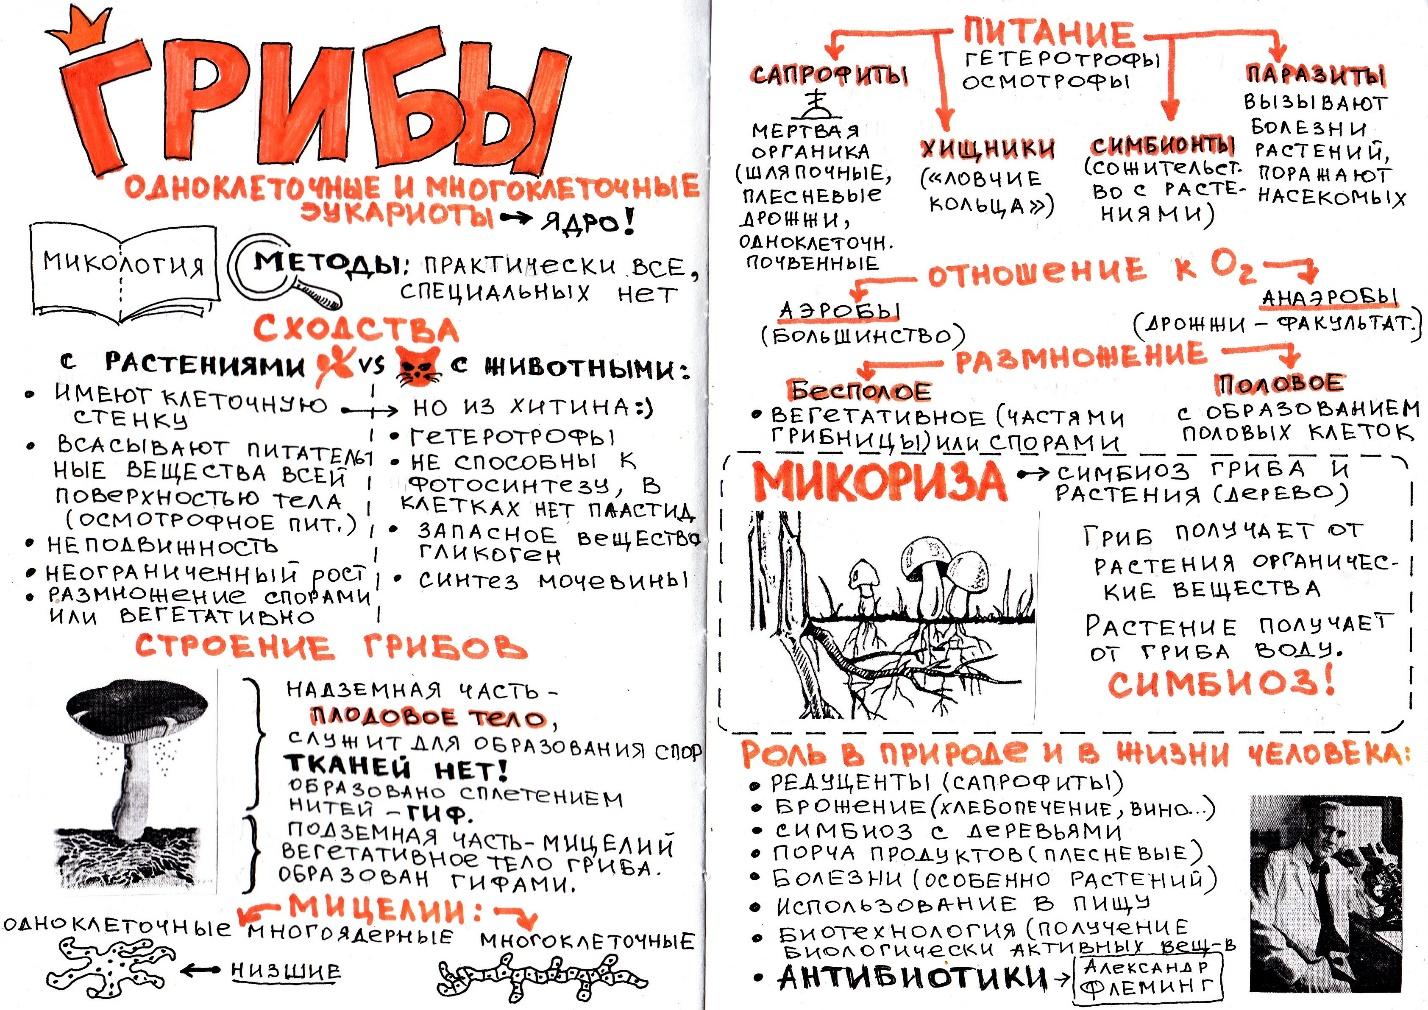 ГРИБЫ
ОДНОКЛЕТОЧНЫЕ И МНОГОКЛЕТОЧНЫЕ
ЭУКАРИОТЫ → ЯДРО!
МИКОЛОГИЯ
МЕТОДЫ: ПРАКТИЧЕСКИ ВСЕ,
СПЕЦИАЛЬНЫХ НЕТ
СХОДСТВА
С РАСТЕНИЯМИ VS С ЖИВОТНЫМИ:
• ИМЕЮТ КЛЕТОЧНУЮ
СТЕНКУ
• ВСАСЫВАЮТ ПИТАТЕЛЬ
НЫЕ ВЕЩЕСТВА ВСЕЙ
ПОВЕРХНОСТЬЮ ТЕЛА
(ОСМОТРОФНОЕ ПИТ.)
• НЕПОДВИЖНОСТЬ
• НЕОГРАНИЧЕННЫЙ РОСТ
• РАЗМНОЖЕНИЕ СПОРАМИ
ИЛИ ВЕГЕТАТИВНО
НО ИЗ ХИТИНА:)
• ГЕТЕРОТРОФЫ
• НЕ СПОСОБНЫ К
ФОТОСИНТЕЗУ, В
КЛЕТКАХ НЕТ ПЛАСТИД
• ЗАПАСНОЕ ВЕЩЕСТВО
ГЛИКОГЕН
• СИНТЕЗ МОЧЕВИНЫ
СТРОЕНИЕ ГРИБОВ
НАДЗЕМНАЯ ЧАСТЬ -
ПЛОДОВОЕ ТЕЛО,
СЛУЖИТ ДЛЯ ОБРАЗОВАНИЯ СПОР
ТКАНЕЙ НЕТ!
ОБРАЗОВАНО СПЛЕТЕНИЕМ
НИТЕЙ - ГИФ.
ПОДЗЕМНАЯ ЧАСТЬ - МИЦЕЛИЙ
ВЕГЕТАТИВНОЕ ТЕЛО ГРИБА.
ОБРАЗОВАН ГИФАМИ.
МИЦЕЛИИ:
ОДНОКЛЕТОЧНЫЕ МНОГОЯДЕРНЫЕ МНОГОКЛЕТОЧНЫЕ
← НИЗШИЕ
ПИТАНИЕ
ГЕТЕРОТРОФЫ
ОСМОТРОФЫ
САПРОФИТЫ
МЕРТВАЯ
ОРГАНИКА
(ШЛЯПОЧНЫЕ,
ПЛЕСНЕВЫЕ
ДРОЖЖИ,
ОДНОКЛЕТОЧН.
ПОЧВЕННЫЕ
ХИЩНИКИ
(«ЛОВЧИЕ
КОЛЬЦА»)
СИМБИОНТЫ
(СОЖИТЕЛЬСТ-
ВО С РАСТЕ-
НИЯМИ)
ПАРАЗИТЫ
ВЫЗЫВАЮТ
БОЛЕЗНИ
РАСТЕНИЙ,
ПОРАЖАЮТ
НАСЕКОМЫХ
ОТНОШЕНИЕ К O2
АЭРОБЫ
(БОЛЬШИНСТВО)
АНАЭРОБЫ
(ДРОЖЖИ - ФАКУЛЬТАТ.)
РАЗМНОЖЕНИЕ
БЕСПОЛОЕ
• ВЕГЕТАТИВНОЕ (ЧАСТЯМИ
ГРИБНИЦЫ) ИЛИ СПОРАМИ
ПОЛОВОЕ
С ОБРАЗОВАНИЕМ
ПОЛОВЫХ КЛЕТОК
МИКОРИЗА → СИМБИОЗ ГРИБА И
РАСТЕНИЯ (ДЕРЕВО)
ГРИБ ПОЛУЧАЕТ ОТ
РАСТЕНИЯ ОРГАНИЧЕС-
КИЕ ВЕЩЕСТВА
РАСТЕНИЕ ПОЛУЧАЕТ
ОТ ГРИБА ВОДУ.
СИМБИОЗ!
РОЛЬ В ПРИРОДЕ И В ЖИЗНИ ЧЕЛОВЕКА:
• РЕДУЦЕНТЫ (САПРОФИТЫ)
• БРОЖЕНИЕ (ХЛЕБОПЕЧЕНИЕ, ВИНО...)
• СИМБИОЗ С ДЕРЕВЬЯМИ
• ПОРЧА ПРОДУКТОВ (ПЛЕСНЕВЫЕ)
• БОЛЕЗНИ (ОСОБЕННО РАСТЕНИЙ)
• ИСПОЛЬЗОВАНИЕ В ПИЩУ
• БИОТЕХНОЛОГИЯ (ПОЛУЧЕНИЕ
БИОЛОГИЧЕСКИ АКТИВНЫХ ВЕЩ-В
• АНТИБИОТИКИ → АЛЕКСАНДР
ФЛЕМИНГ